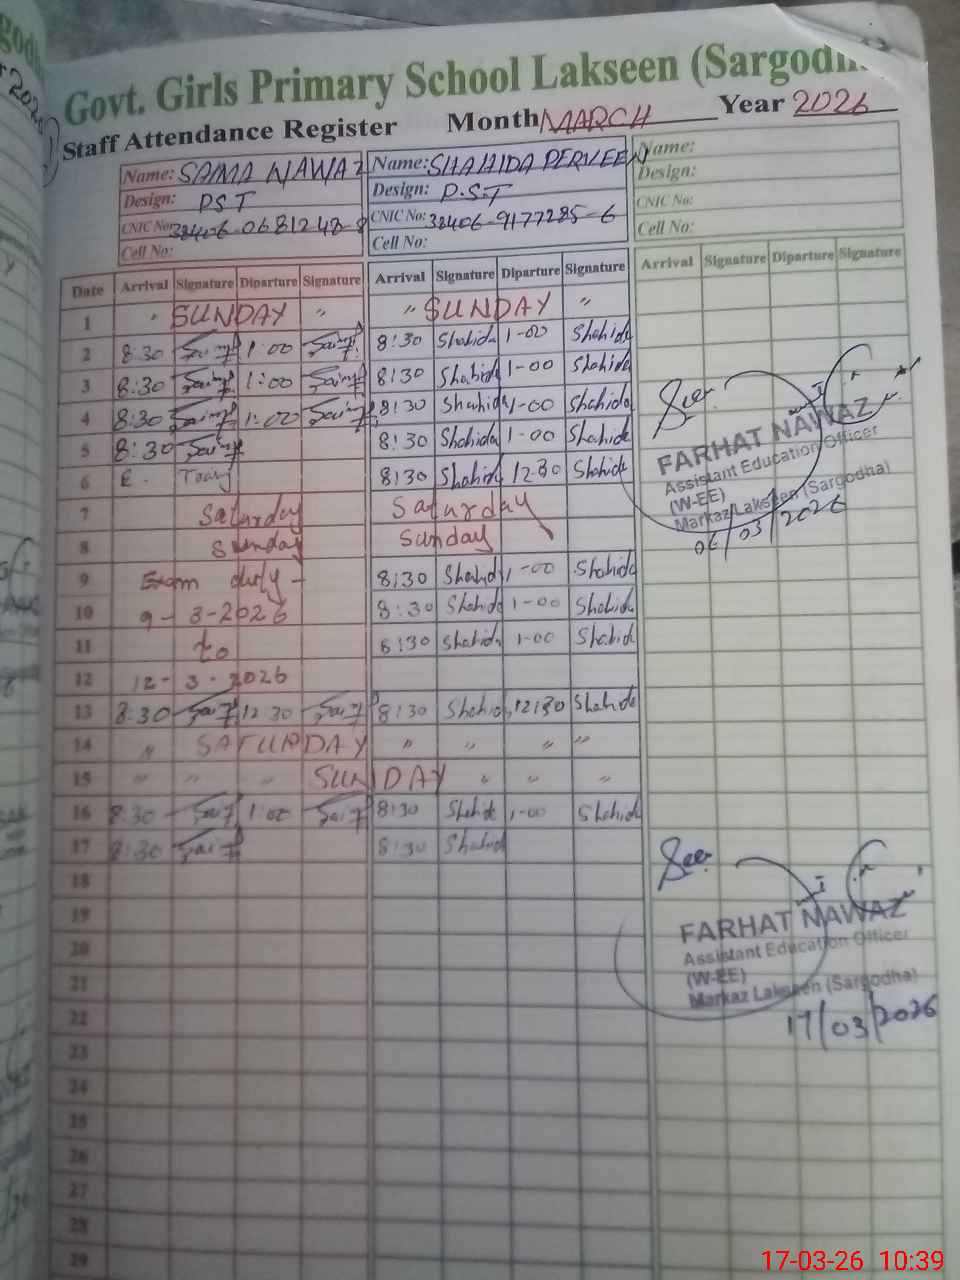 Govt. Girls Primary School Lakseen (Sargodh
Staff Attendance Register Month MARCH Year 2026
Name: SAMA NAWAZ Name: SHAHIDA PERVEEN Name:
Design: PST Design: P.ST Design:
CNIC No: 38406-0681248-8 CNIC No: 38406-9177285-6 CNIC No:
Cell No: Cell No: Cell No:
Date Arrival Signature Diparture Signature Arrival Signature Diparture Signature Arrival Signature Diparture Signature
1 " SUNDAY " " SUNDAY "
2 8:30 1:00 8:30 Shahida 1-00 Shahida
3 8:30 1:00 8:30 Shahida 1-00 Shahida
4 8:30 1:00 8:30 Shahida 1-00 Shahida
5 8:30 8:30 Shahida 1-00 Shahida
6 8:30 Shahida 12-30 Shahida
7 Saturday Saturday
8 Sunday Sunday
9 Exam duty - 8:30 Shahida 1-00 Shahida
10 9-3-2026 8:30 Shahida 1-00 Shahida
11 to 8:30 Shahida 1-00 Shahida
12 12-3-2026
13 8:30 12 30 8:30 Shahida 12:30 Shahida
14 " SATURDAY " " " "
15 " " " SUNDAY " " "
16 8:30 1:00 8:30 Shahida 1-00 Shahida
17 8:30 8:30 Shahid
18
19
20
21
22
23
24
25
26
27
28
29
Seen
FARHAT NAWAZ
Assistant Education Officer
(W-EE)
Markaz Lakseen (Sargodha)
06/03/2026
Seen
FARHAT NAWAZ
Assistant Education Officer
(W-EE)
Markaz Lakseen (Sargodha)
17/03/2026
17-03-26 10:39